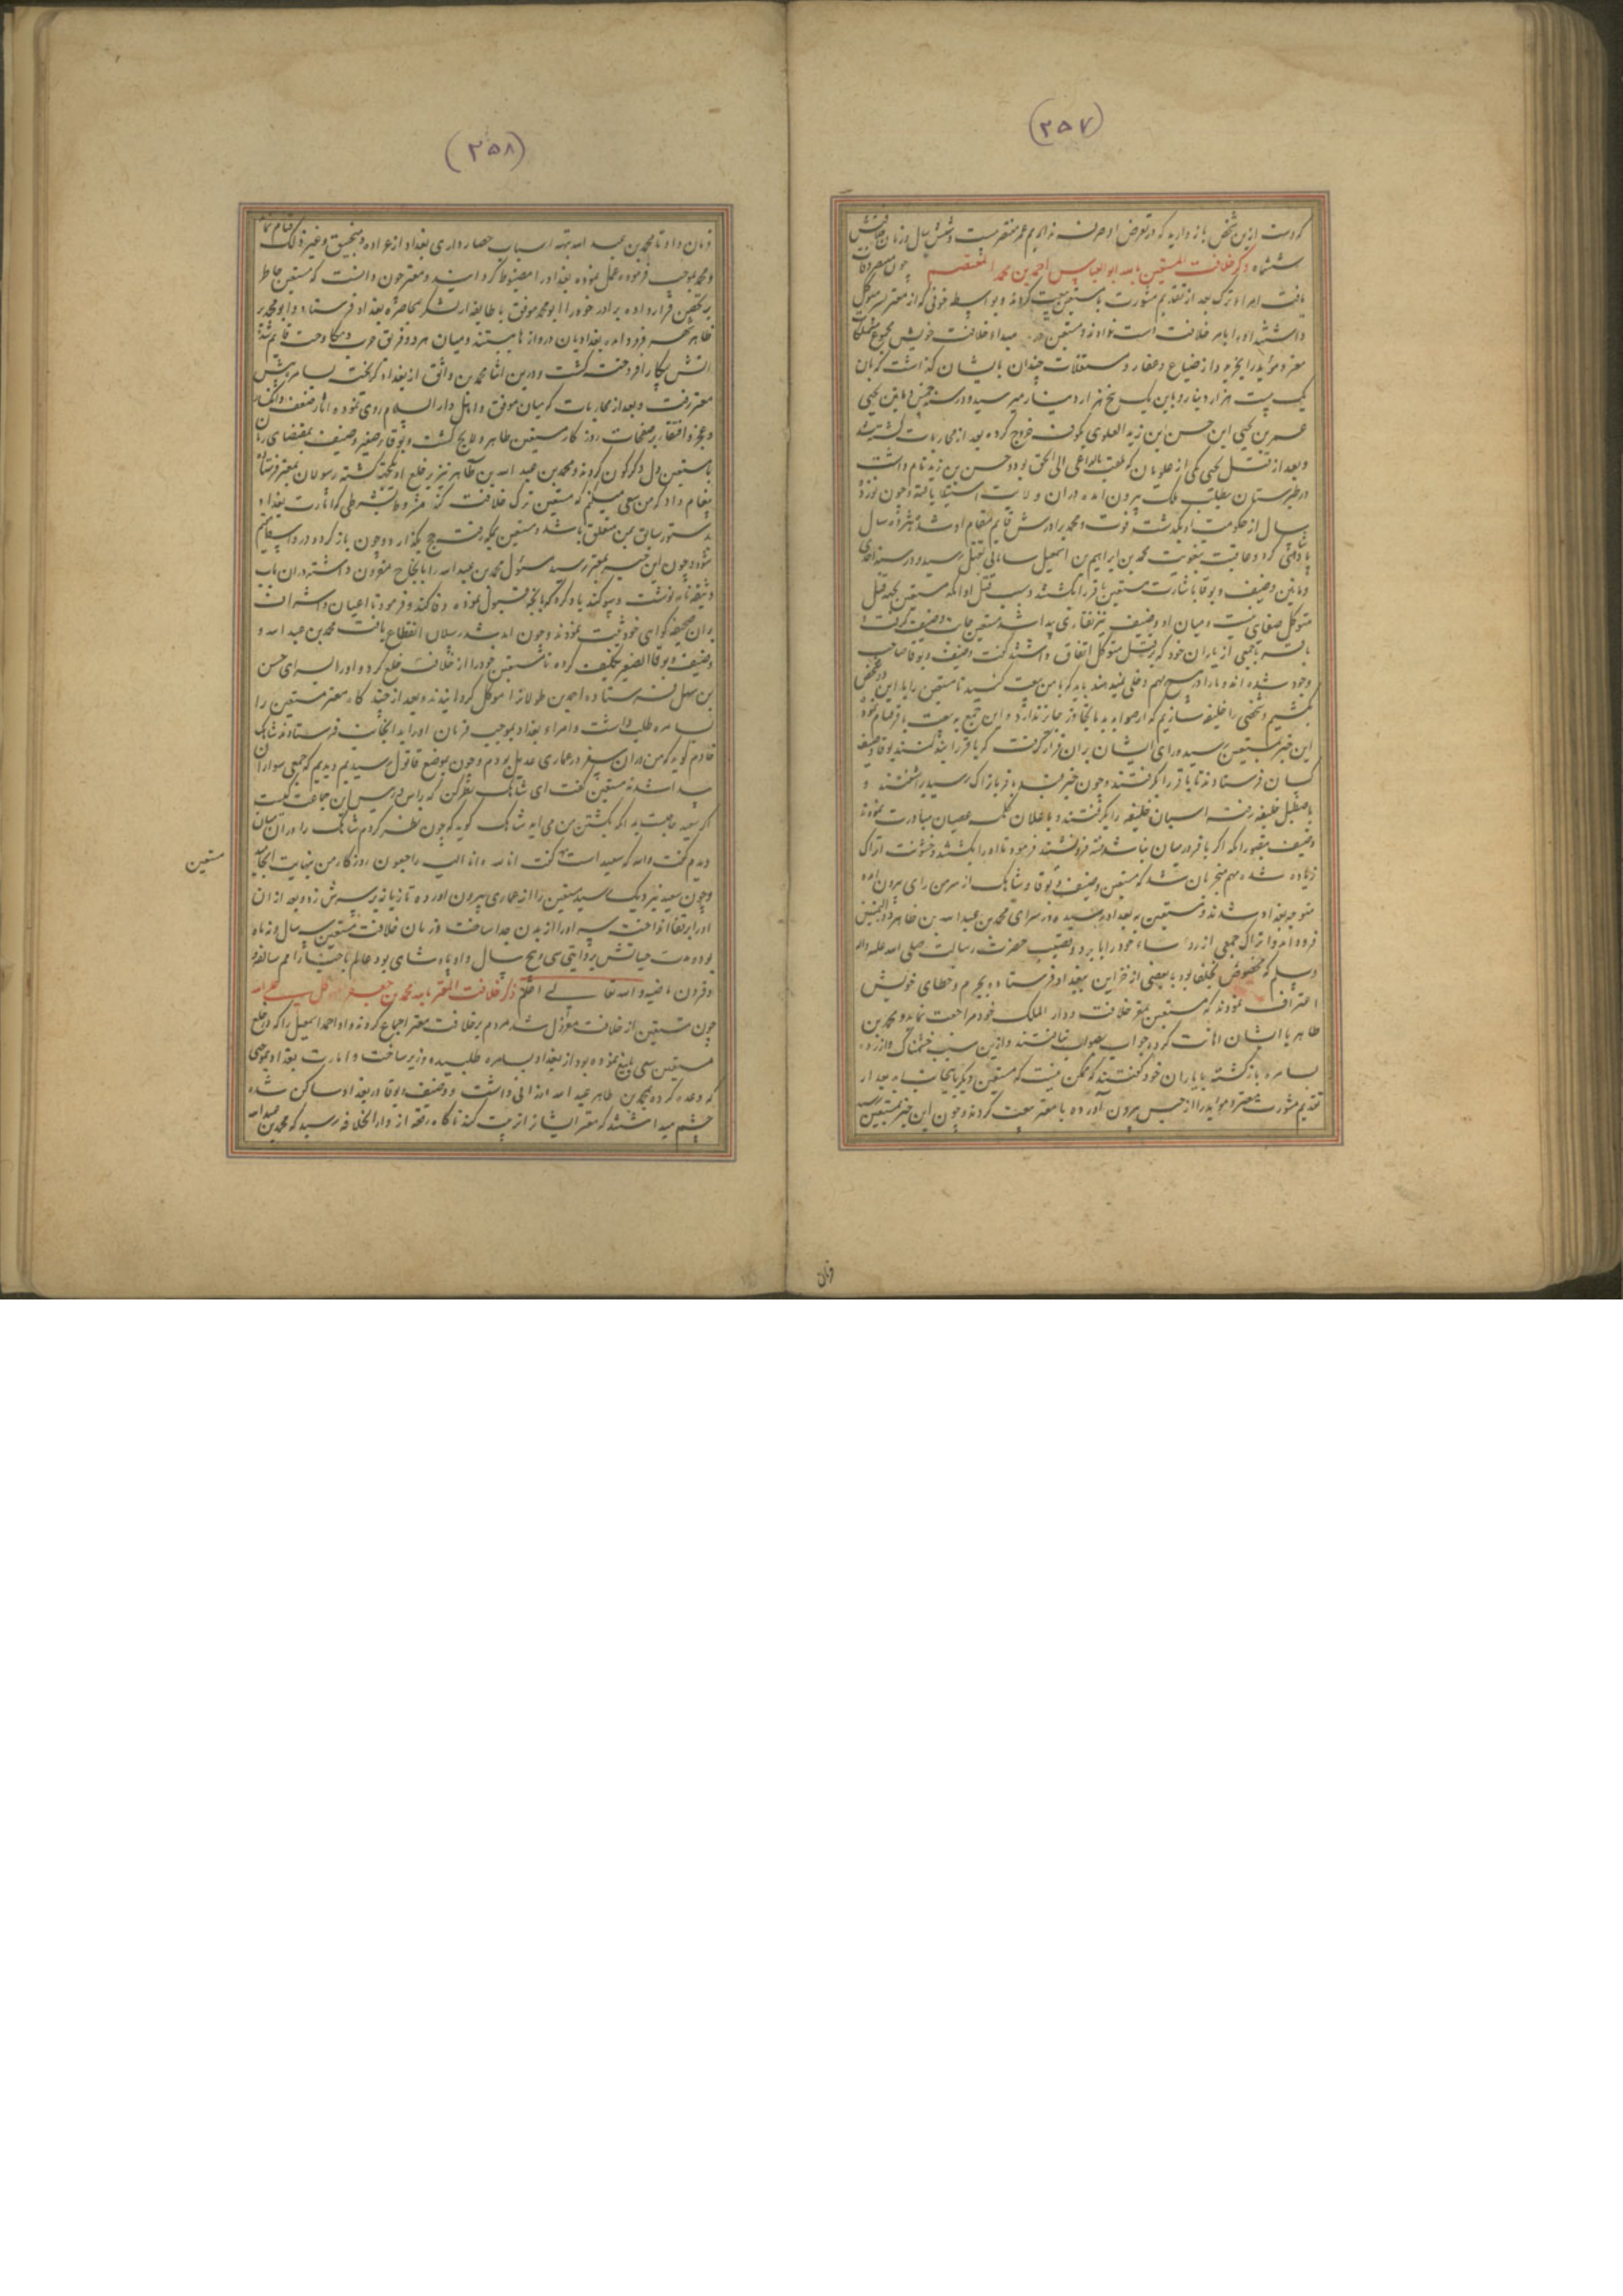 (۲۵۷)
که دست ازین شخص باز دارید که در تعرض او صرفه نداریم عمر منتصر بیست و شش سال و زمان خلافتش
ششماه ذکر خلافت المستعین بالله ابو العباس احمد بن محمد المعتصم چون منتصر وفات
یافت امراء ترک بعد از تقدیم مشورت با مستعین بیعت کردند و بواسطه خوفی که از معتز پسر متوکل
داشتند او را بامر خلافت است ندادند و مستعین در مبداء خلافت خویش مجموع متملکات
معتز و مؤید را بخرید و از ضیاع و عقار و مستغلات چندان بایشان گذاشت که بآن
یک بیست هزار دینار و باین یک پنج هزار دینار میرسید و در سنه خمسین و مأتین یحیی
عمر بن یحیی ابن حسن ابن زید العلوی بکوفه خروج کرده بعد از محاربات کشته شد
و بعد از قتل یحیی یکی از علویان که ملقب بالداعی الی الحق بود و حسن بن زید نام داشت
در طبرستان بطلب ملک بیرون آمده در آن ولایت استیلا یافته و چون نوزده
سال از حکومت او بگذشت فوت و محمد برادرش قایم مقام او شد و هژده سال
پادشاهی کرد و عاقبت بتقویت محمد بن ابراهیم بن اسمعیل سامانی بقتل رسید و در سنه احدی
و مأتین وصیف و بوقا باشارت مستعین باقر را بکشتند و سبب قتل او آنکه مستعین بجهة قتل
متوکل صفایی نداشت و میان او و وصیف نیز نقاری پیدا شد مستعین جانب وصیف گرفت
باقر با جمعی از یاران خود که بر قتل متوکل اتفاق داشتند گفت وصیف و بوقا صاحب
وجود شده اند و ما را در هیچ مهم دخلی نمیدهند باید که با من بیعت کنید تا مستعین را با این دو شخص
بکشیم و شخصی را خلیفه سازیم که از صوابدید ما تجاوز جایز ندارد و این جمع به بیعت باقر قیام نمود
این خبر بمستعین رسید و رای ایشان بر آن قرار گرفت که باقر را بند کنند بوقا و وصیف
کسان فرستادند تا باقر را بگرفتند و چون خبر قید باقر باتراک رسید برآشفتند و
باصطبل خلیفه رفته اسبان خلیفه را بگرفتند و باعلان کلمه عصیان مبادرت نمودند
وصیف بتصور آنکه اگر باقر در میان نباشد فتنه فرونشیند فرمود تا او را بکشتند و خشونت اتراک
زیاده شده مهم منجر بآن شد که مستعین و وصیف و بوقا و شاهک از سر من رای بیرون آمده
متوجه بغداد شدند و مستعین به بغداد رسیده در سرای محمد بن عبد الله بن طاهر ذو الیمینین
فرود آمد و اتراک جمعی از رؤساء خود را با برد و قضیب حضرت رسالت صلی الله علیه و آله
وسلم که مخصوص بخلفا بود با بعضی از خزاین ببغداد فرستاده بجرم و خطای خویش
اعتراف نمودند که مستعین بمقر خلافت و دار الملک خود مراجعت نماید و محمد بن
طاهر با ایشان اهانت کرده جواب بصواب نیافتند و ازین سبب خشمناک و آزرده
بسامره بازگشته با یاران خود گفتند که ممکن نیست که مستعین دیگر باینجانب آید بعد از
تقدیم مشورت معتز و مؤید را از حبس بیرون آورده با معتز بیعت کردند و چون این خبر بمستعین رسید
فرمان
(۲۵۸)
فرمان داد تا محمد بن عبد الله بتهیه اسباب حصار داری بغداد از عراده و منجنیق و غیر ذلک قیام نماید
و محمد بموجب فرموده عمل نموده بغداد را مضبوط گردانید و معتز چون دانست که مستعین خاطر
بر تحصن قرار داده برادر خود را ابو محمد موفق با طایفه از لشکر بمحاصره بغداد فرستاد و ابو محمد بر
ظاهر شهر فرود آمد بغدادیان دروازها ببستند و میان هر دو فریق حرب دست داد و حدت قایم شد
آتش پیکار افروخته گشت و درین اثنا محمد بن واثق از بغداد گریخته بسامره پیش
معتز رفت و بعد از محاربات که میان موفق و اهل دار السلام روی نموده آثار ضعف و انکسار
و عجز و افتقار بر صفحات روزگار مستعین ظاهر و لایح گشت و بوقا صغیر و وصیف بمقتضای زمان
با مستعین دل دگرگون کردند و محمد بن عبد الله بن طاهر نیز بر خلع او یکجهت گشته رسولان بمعتز فرستاد
پیغام داد که من سعی میکنم که مستعین ترک خلافت کند مشروط بشرطی که امارت بغداد
بدستور سابق بمن متعلق باشد و مستعین بمکه رفته حج بگذارد و چون باز گردد در واسط مقیم
شود و چون این خبر بمعتز رسید مسئول محمد بن عبد الله را بانجاح مقرون داشته در آن باب
وثیقه نامه نوشت و سوگند یاد کرد که بآنچه قبول نموده وفا کند و فرمود تا اعیان و اشراف
بر آن صحیفه گواهی خود ثبت نمودند و چون آمد شد رسولان انقطاع یافت محمد بن عبد الله و
وصیف و بوقا الصغیر تکلیف کرده تا مستعین خود را از خلافت خلع کرد و او را بسرای حسن
بن سهل فرستاده احمد بن طولان را موکل گردانیدند و بعد از چند گاه معتز مستعین را
بسامره طلب داشت و امراء بغداد بموجب فرمان او را بدانجانب فرستادند شاهک
خادم گوید که من در آن سفر در عماری عدیل بودم و چون بموضع قاقول رسیدیم دیدیم که جمعی سواران
پیدا شدند مستعین گفت ای شاهک نظر کن که رأس و رئیس این جماعت کیست
اگر سعید حاجب بود آنکه بکشتن من می آید شاهک گوید که چون نظر کردم شاهک را در آن میان
دیدم گفت والله که سعید است گفت انا لله و انا الیه راجعون روزگار من بنهایت انجامید
و چون سعید نزدیک رسید مستعین را از عماری بیرون آورده تازیانه بر سرش زد و بعد از آن
او را بر قفا انداخت سر او را از بدن جدا ساخت و زمان خلافت مستعین سه سال و نه ماه
بود و مدت حیاتش بروایتی سی و پنج سال و او پادشاهی بود عالم باخبار امم سالفه
و قرون ماضیه و الله تعالی اعلم ذکر خلافت المعتز بالله محمد بن جعفر المتوکل علی الله
چون مستعین از خلافت معزول شد مردم بر خلافت معتز اجماع کردند و او احمد اسمعیل را که در خلع
مستعین سعی بلیغ نموده بود از بغداد بسامره طلبیده وزیر ساخت و امارت بغداد بموجبی
که وعده کرده بمحمد بن طاهر عبد الله ارزانی داشت و وصیف و بوقا در بغداد ساکن شده
چشم میداشتند که معتز ایشانرا تربیت کند ناگاه رقعه از دار الخلافه رسید که محمد بن عبد الله
مستعین